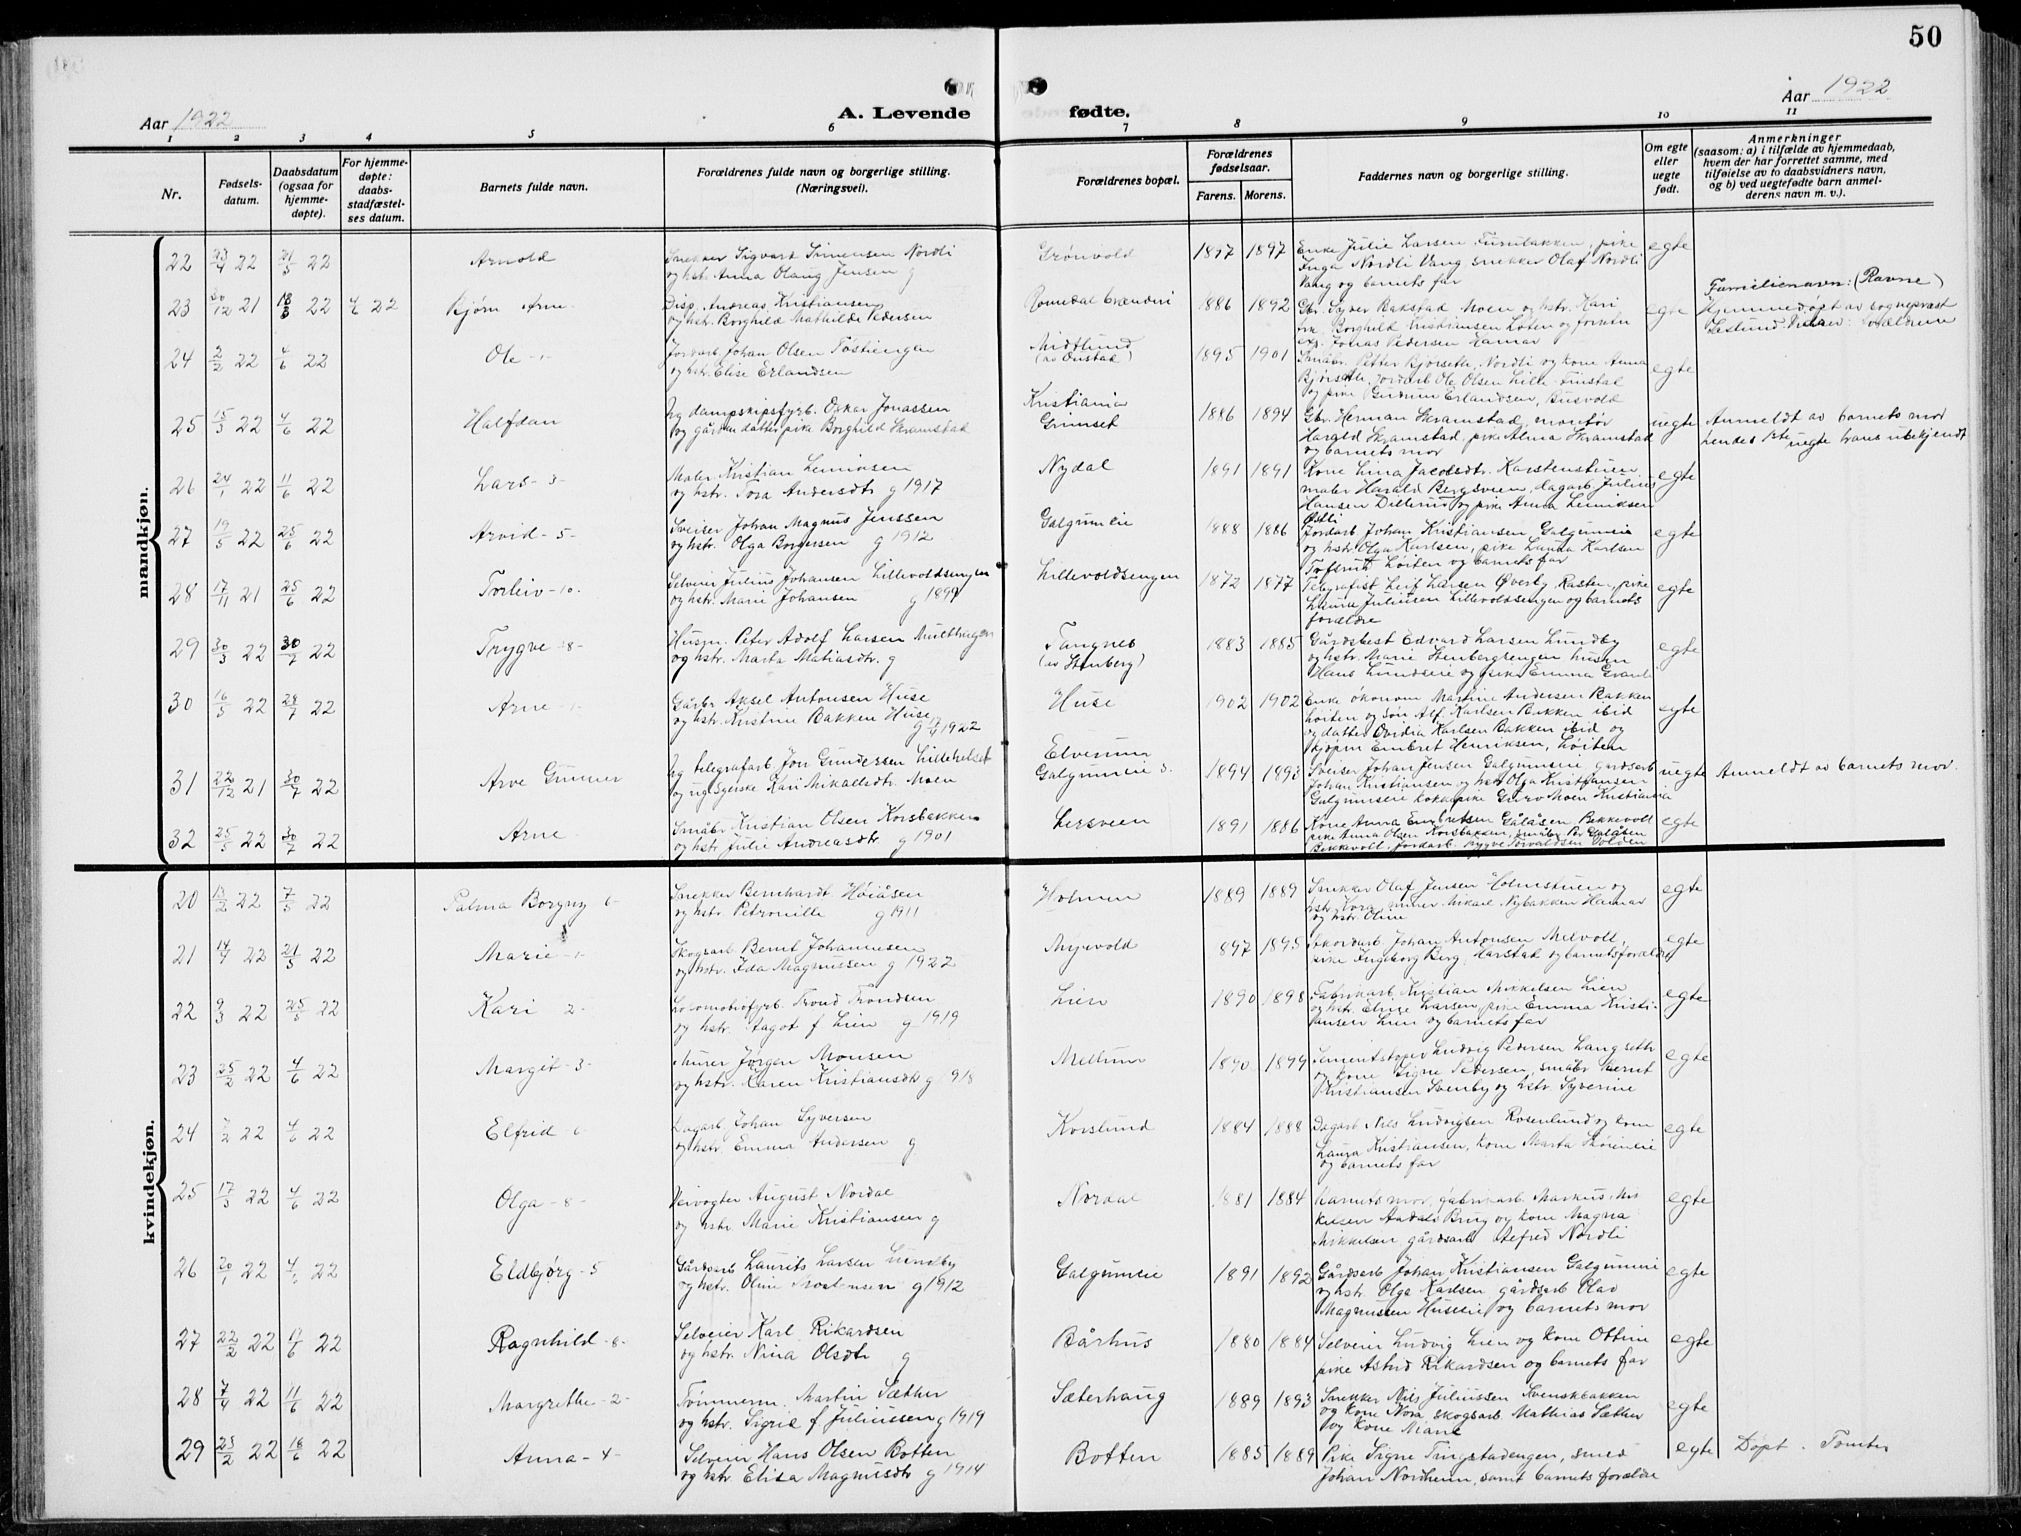 50
Aar 1922
A. Levende
fødte.
Aar 1922
1 2 3 4 5 6 7 8 9 10 11
Nr.
Fødsels-
datum.
Daabsdatum
(ogsaa for
hjemme-
døpte).
For hjemme-
døpte:
daabs-
stadfæstel-
ses datum.
Barnets fulde navn.
Forældrenes fulde navn og borgerlige stilling.
(Næringsvei).
Forældrenes bopæl.
Forældrenes
fødselsaar.
Farens. Morens.
Faddernes navn og borgerlige stilling.
Om egte
eller
uegte
født.
Anmerkninger
(saasom: a) i tilfælde av hjemmedaab,
hvem der har forrettet samme, med
tilføielse av to daabsvidners navn,
og b) ved uegtefødte barn anmel-
derens navn m. v.).
mandkjøn.
22 23/4 22 21/5 22
Arnold
Snekker Sigvart Simensen Nordli
og hstr. Anna Olaug Jensen g
Grønvold
1897 1897
Enke Julie Larsen Furubakken, pike
Inga Nordli Vang, snekker Olaf Nordli
Vang og barnets far
egte
23 30/12 21 18/3 22 22
Bjørn Arne
Disp. Andreas Kristiansen
og hstr. Borghild Mathilde Pedersen
Romedal brænderi
1886 1892
Gbr. Syver Bakstad Moen og hstr. Kari
frk. Borghild Kristiansen Løten og
Jonas Pedersen Hamar
egte
Familienavn: (Ravne)
Hjemmedøpt av sogneprest
24 2/2 22 4/6 22
Ole - 1 -
Jordarb. Johan Olsen Tøstiengen
og hstr. Elise Erlandsen
Midtlund
1895 1901
Småbr. Petter Bjørseth, Nordli og kone Anna
Bjørseth, jordarb Ole Olsen Lille-Finstad
og pike Gudrun Erlandsen, Busvold
egte
25 15/3 22 4/6 22
Halfdan
Ug dampskipsfyrb. Oskar Jonassen
og gårdm datter pike Borghild Skramstad
Kristiania
Grimset
1886 1894
Gbr. Herman Skramstad, montør
Harald Skramstad, pike Alma Skramstad
og barnets mor
uegte
Anmeldt av barnets mor
hendes 1ste uegte hans ubekjendt
26 24/1 22 11/6 22
Lars - 3 -
Maler Kristian
og hstr. Tora Andersdtr. g 1917
Nydal
1891 1891
Kone Lina Jacobsdtr. Karstenstuen
maler Harald Bergsveen, dagarb. Julius
Hansen og pike Anna
Østli
egte
27 19/5 22 25/6 22
Arvid - 5 -
Sveiser Johan Magnus Jenssen
og hstr. Olga Borgersen g 1912
Galgumeie
1888 1886
Jordarb Johan Kristiansen Galgumeie
og hstr Olga Karlsen, pike Laura Karlsen
Toftrud Løiten og barnets far
egte
28 17/11 21 25/6 22
Torleiv - 10 -
Selveier Julius Johansen Lillevoldsengen
og hstr. Marie Johansen g 1899
Lillevoldsengen
1872 1877
Telegrafist Leif Larsen Øverby, Rasten, pike
Laura Juliusen Lillevoldsengen og barnets
forældre
egte
29 30/3 22 30/7 22
Trygve - 8 -
Husm. Peter Adolf Larsen
og hstr. Marta Matiasdtr. g
Tangnes
(u/ Stenberg)
1883 1885
Gårdsbest Edvard Larsen Lundby
og hstr. Marie Stenbergengen husm
Hans Lundseie og pike Emma
egte
30 16/5 22 29/7 22
Arne - 1 -
Gårbr Aksel Antonsen Huse
og hstr. Kristine Bakken Huse
1922
Huse
1902 1902
Enke økonom Martine Andersen Bakken
Løiten og søn Alf Karlsen Bakken ibid
og datter Ovidia Karlsen Bakken ibid og
Embret Henriksen, Løiten
egte
31 22/12 21 30/7 22
Arve Gunnar
Ug telegrafarb Jon Gundersen Lillehelset
og ug syerske Kari Mikkelsdtr. Moen
Elverum
Galgumeie
1894 1893
Sveiser Johan Jensen Galgumeie gårdsarb
Johan Kristiansen og hstr Olga Kristiansen
Galgumeie kokkepike Guro Moen Kristiania
uegte
Anmeldt av barnets mor.
32 25/5 22 30/7 22
Arne
Småbr. Kristian Olsen Korsbakken
og hstr Julie Andreasdtr g 1901
Lersveen
1891 1886
Kone Anna Embretsen Galåsen, Bekkevoll
pike Anna Olsen Korsbakken, småbr Per Galåsen
Bekkevoll, jordarb. Trygve Torvaldsen
egte
kvindekjøn.
20 13/2 22 7/5 22
Palma Borgny 6 -
Snekker Bernhardt Høiåsen
og hstr. Petronille g 1911
Holmen
1889 1889
Snekker Olaf Jensen Holmstuen og
hstr Kora, murer Mikael Nybakken Hamar
og hstr. Oline
egte
21 14/4 22 21/5 22
Marie - 1 -
Skogsarb. Bernt Johannesen
og hstr. Ida Magnussen g 1922
Myrvold
1897 1895
Johan Antonsen Melvoll,
pike Ingeborg Berg, Harstad og barnets forældre
egte
22 9/3 22 25/5 22
Kari 2 -
Lokomotivfyrb. Trond Trondsen
og hstr. Aagot f. Lien g 1919
Lien
1890 1898
Fabrikarb. Kristian Mikkelsen Lien
og hstr. Elise Larsen, pike Emma Kristi-
ansen Lien og barnets far
egte
23 25/2 22 4/6 22
Margit - 3 -
Murer Jørgen Monsen
og hstr. Karen Kristiansdtr g 1918
Mellum
1890 1899
Sementstøper Ludvig Pedersen Langseth
og kone Signe Pedersen, småbr Bernt
Kristiansen Svenby og hstr. Syverine
egte
24 22 4/6 22
Elfrid - 6 -
Dagarb. Johan Syversen
og hstr. Emma Andersen g
Korslund
1884 1888
Dagarb Nils Ludvigsen Rosenlund og kone
Laura Kristiansen, kone Marta
og barnets far
egte
25 17/3 22 4/6 22
Olga - 8 -
Veivogter August Nordal
og hstr Marie Kristiansen g
Nordal
1881 1884
Barnets mor, fabrikarb. Markus Mik
kelsen Aadals Brug og kone Magna
Mikkelsen, gårdsarb Alfred Nordli
egte
26 20/1 22 4/6 22
Eldbjørg - 5
Gårdsarb Laurits Larsen Lundby
og hstr. Oline g 1912
Galgumeie
1891 1892
Gårdsarb Johan Kristiansen Galgumeie
og hstr. Olga Karlsen, gårdsarb Olav
Magnussen Huseeie og barnets mor
egte
27 22/2 22 17/6 22
Ragnhild - 8 -
Selveier Karl Rikardsen
og hstr. Nina Olsdtr g
Bårhus
1880 1884
Selveier Ludvig Lien og kone Ottine
pike Astrid Rikardsen og barnets far
egte
28 7/4 22 11/6 22
Margrethe - 2 -
Tømmerm. Martin Sæther
og hstr. Sigrid f. Juliussen g 1919
Sæterhaug
1889 1893
Snekker Nils Juliussen Svenskbakken
og kone Nora, skogsarb Mathias Sæther
og kone Marie
egte
29 25/2 22 18/6 22
Anna - 4 -
Selveier Hans Olsen Botten
og hstr. Elisa Magnusdtr g 1914
Botten
1885 1889
Pike Signe Tingstadengen, smed
Johan Nordheim, samt barnets forældre
egte
Døpt. Tomter